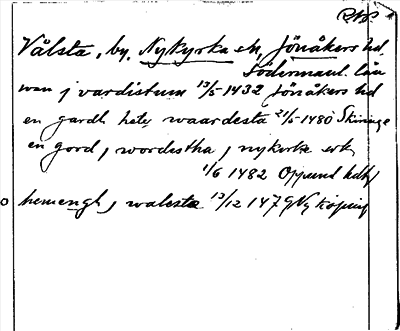 Vålsta, by, Nykyrka sn, Jönåkers hd,
Södermanl. län
wan j vardistum 13/5 1432 Jönåkers hd
en gardh hete waardesta 21/5 1480 Skininge
en gord j wordestha j nykirke
1/6 1482 Oppund hdtg
hemengh j walesta 13/12 1479 Nyköping